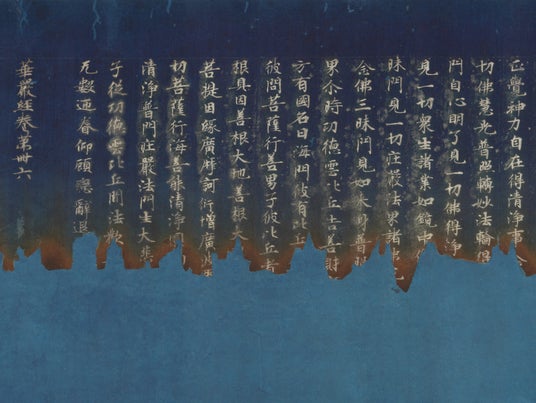 正覺神力自在得清淨
切佛慧光普照轉妙法輪得
門自心明了見一切佛得淨
見一切衆生諸業如鏡中
昧門見一切莊嚴法界諸
念佛三昧門見如來身普照
界尒時功德雲比丘告善財
方有國名曰海門彼有比丘
彼問菩薩行善男子彼比丘者
根具因善根大地善根大
菩提因緣廣摩訶衍增廣
切菩薩行海善能清淨
清淨普門莊嚴法門生大悲
子從功德雲比丘聞法歡
无數迊眷仰顧戀辭退
華嚴經卷第卌六